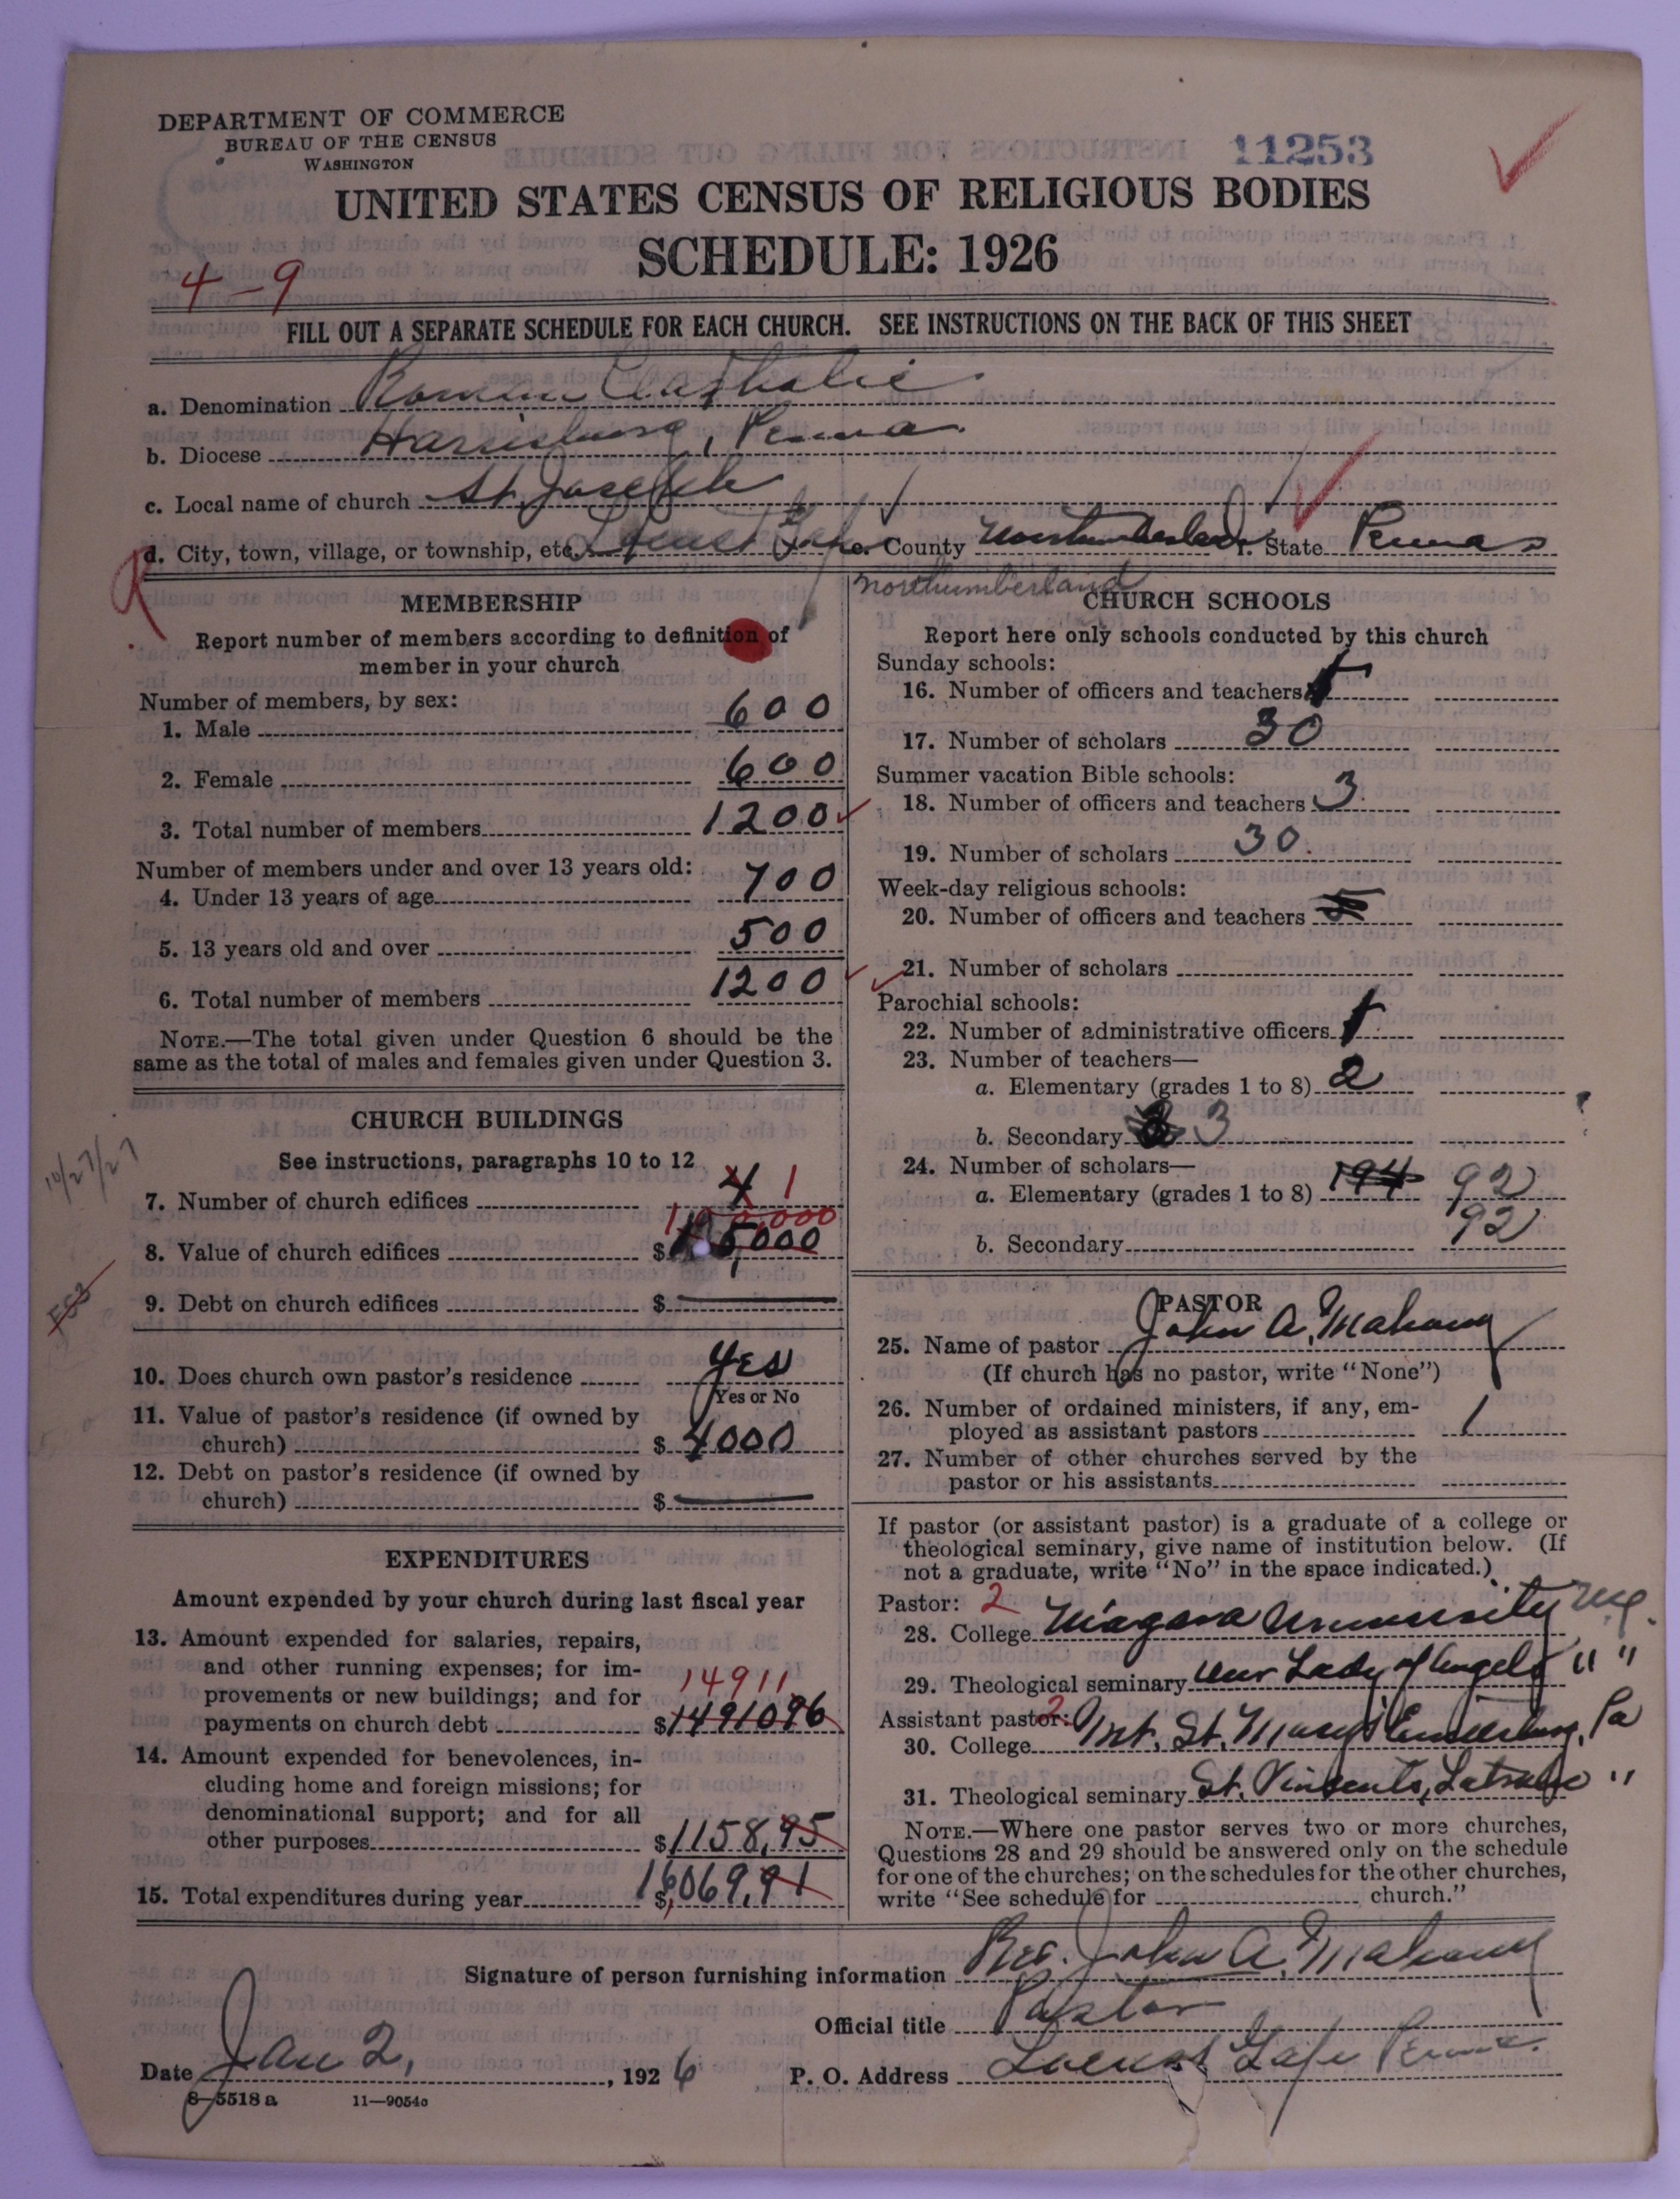 DEPARTMENT OF COMMERCE
BUREAU OF THE CENSUS
WASHINGTON
11253
UNITED STATES CENSUS OF RELIGIOUS BODIES
SCHEDULE: 1926
4-9
FILL OUT A SEPARATE SCHEDULE FOR EACH CHURCH. SEE INSTRUCTIONS ON THE BACK OF THIS SHEET
a. Denomination Roman Catholic
b. Diocese Harrisburg, Penna.
c. Local name of church St. Joseph
d. City, town, village, or township, etc. Locust Gap e. County Northumberland f. State Penna
Northumberland
MEMBERSHIP
Report number of members according to definition of
member in your church
Number of members, by sex:
1. Male 600
2. Female 600
3. Total number of members 1200
Number of members under and over 13 years old:
4. Under 13 years of age 700
5. 13 years old and over 500
6. Total number of members 1200
NOTE.—The total given under Question 6 should be the
same as the total of males and females given under Question 3.
CHURCH BUILDINGS
See instructions, paragraphs 10 to 12
10/27/27
7. Number of church edifices 4 1
8. Value of church edifices $ 5,000
9. Debt on church edifices $
10. Does church own pastor's residence Yes
Yes or No
11. Value of pastor's residence (if owned by
church) $ 4000
12. Debt on pastor's residence (if owned by
church) $
EXPENDITURES
Amount expended by your church during last fiscal year
13. Amount expended for salaries, repairs,
and other running expenses; for im-
provements or new buildings; and for 14911
payments on church debt $ 1491096
14. Amount expended for benevolences, in-
cluding home and foreign missions; for
denominational support; and for all
other purposes $ 1158,95
15. Total expenditures during year $ 16,069,91
CHURCH SCHOOLS
Report here only schools conducted by this church
Sunday schools:
16. Number of officers and teachers
17. Number of scholars 30
Summer vacation Bible schools:
18. Number of officers and teachers 3.
19. Number of scholars 30.
Week-day religious schools:
20. Number of officers and teachers
21. Number of scholars
Parochial schools:
22. Number of administrative officers
23. Number of teachers—
a. Elementary (grades 1 to 8) 2
b. Secondary 3
24. Number of scholars—
a. Elementary (grades 1 to 8) 194 92
b. Secondary 92
PASTOR
25. Name of pastor John A. Mahony
(If church has no pastor, write "None")
26. Number of ordained ministers, if any, em-
ployed as assistant pastors 1
27. Number of other churches served by the
pastor or his assistants
If pastor (or assistant pastor) is a graduate of a college or
theological seminary, give name of institution below. (If
not a graduate, write "No" in the space indicated.)
Pastor: 2
28. College Niagara University N.Y.
29. Theological seminary Our Lady of Angels " "
Assistant pastor: 2
30. College Mt. St. Mary's Emmitsburg, Pa
31. Theological seminary St. Vincents, Latrobe "
NOTE.—Where one pastor serves two or more churches,
Questions 28 and 29 should be answered only on the schedule
for one of the churches; on the schedules for the other churches,
write "See schedule for church."
Signature of person furnishing information Rev. John A. Mahony
Official title Pastor
Date Jan 2, 1926 P. O. Address Locust Gap Penna.
8-5518 a 11-9054a